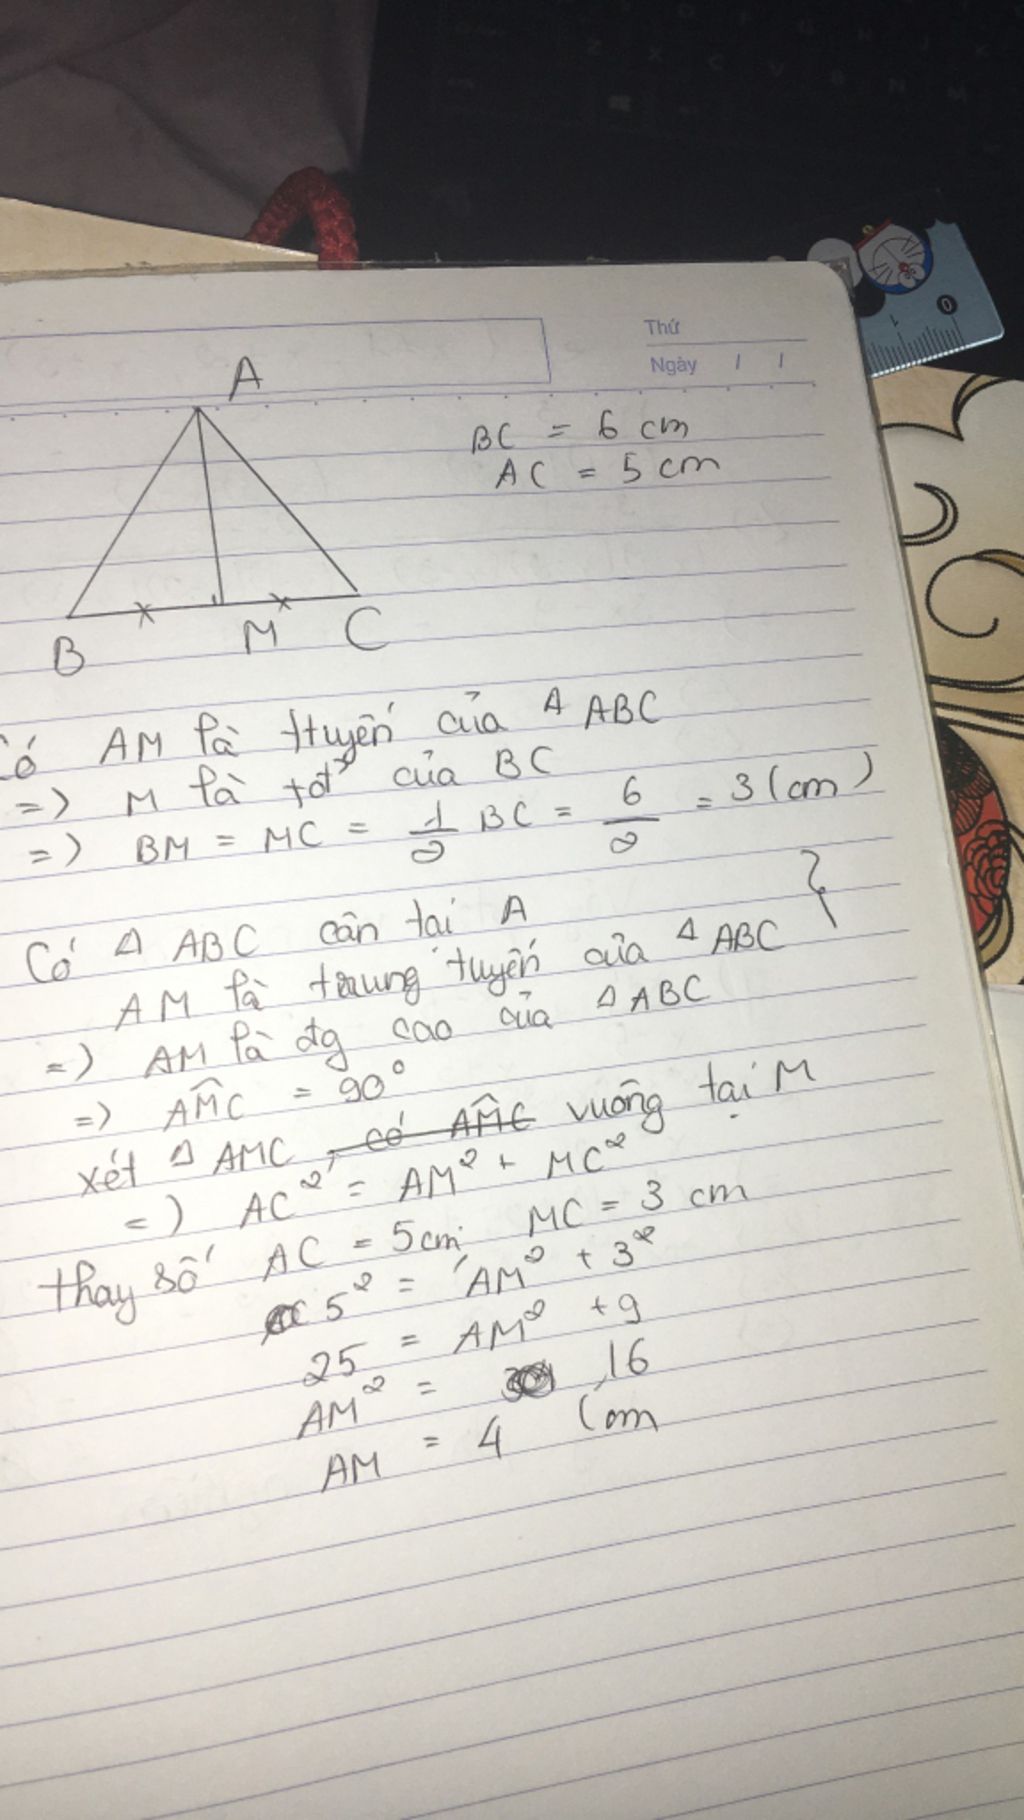 Thứ
Ngày / /
A
BC = 6 cm
AC = 5 cm
B M C
Có AM là ttuyến của Δ ABC
=) M là tđ' của BC
=) BM = MC = 1/2 BC = 6/2 = 3 (cm)
Có Δ ABC cân tai A
AM là trung tuyến của Δ ABC
=) AM là đg cao của Δ ABC
=) AMC = 90°
xét Δ AMC, có AMC vuông tại M
=) AC² = AM² + MC²
thay số AC = 5cm MC = 3 cm
5² = AM² + 3²
25 = AM² + 9
AM² = 16
AM = 4 cm
0 1